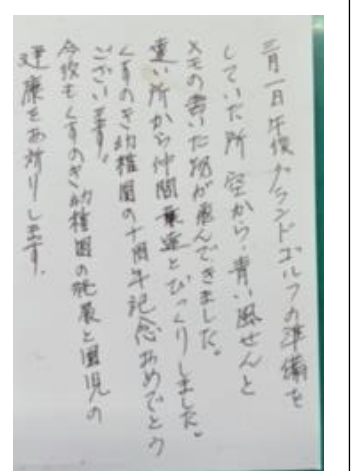 三月一日午後グランドゴルフの準備を
していた所 空から、青い風せんと
メモの書いた物が飛んできました。
遠い所から仲間達とびっくりしました。
くすのき幼稚園の十周年記念おめでとう
ございます。
今後もくすのき幼稚園の発展と園児の
健康をお祈りします。